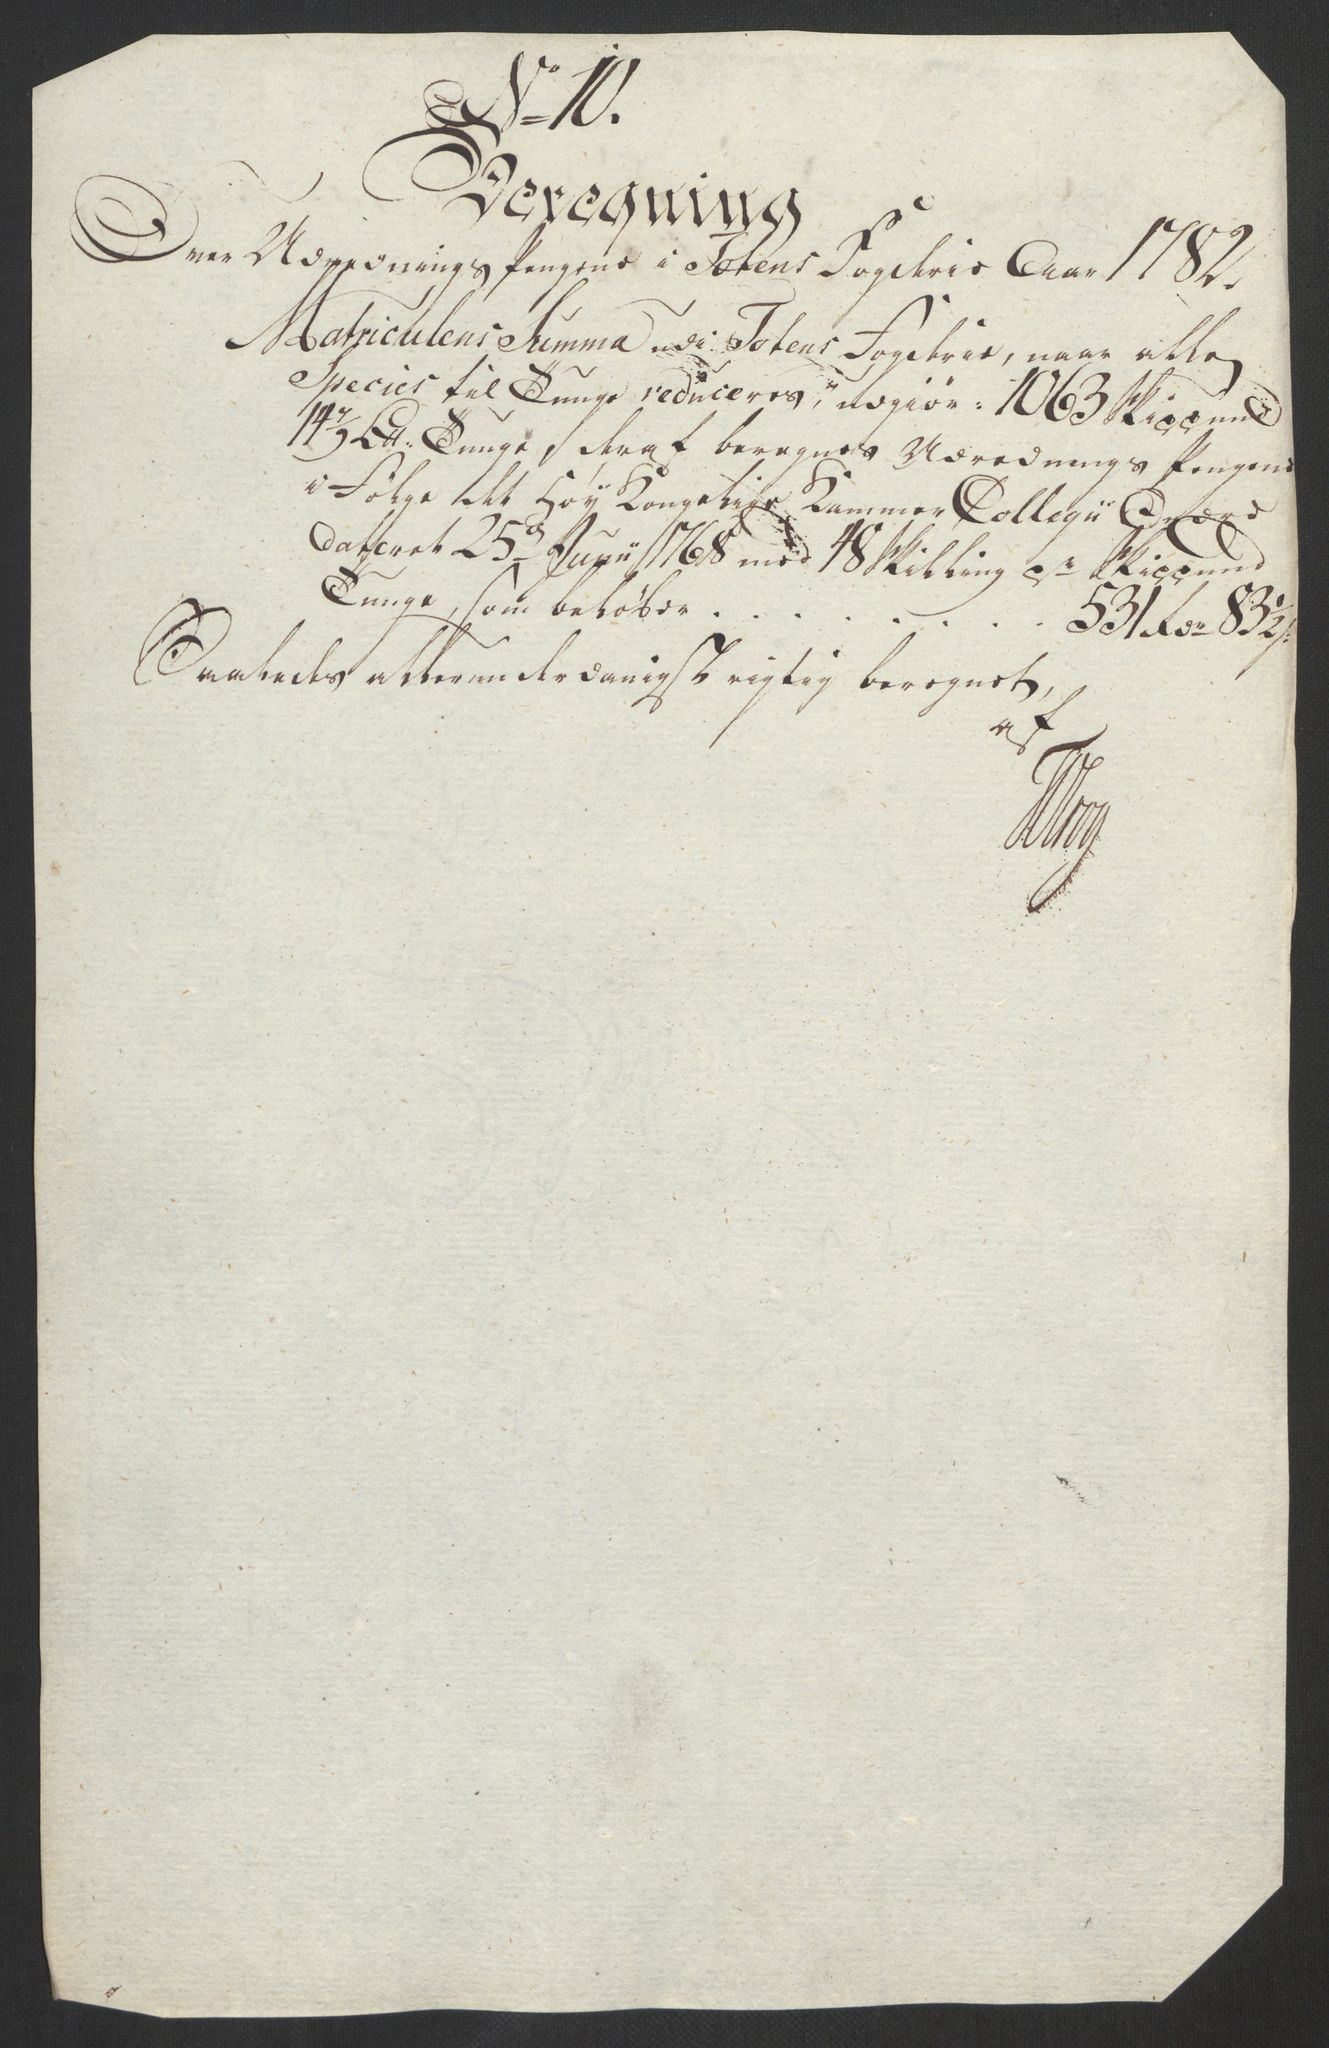 No 10.
Beregning
Over Udrednings Pengene i Totens Fogderie Aar 1782.
Matriculens Summa udi Totens Fogderie, naar alle
Species til Tunge reduceres, udgiør: 1063 Skippund
14 2/3 Ld: Tunge, deraf beregnes Udrednings Pengene
i Følge det Høy Kongelige Kammer Collegii Ordre
dateret 25d Junii 1768 med 48 Skilling pr Skippund
Tunge, som beløber . . . . . . . . 531 Rdr 83 1/2 s:
Saaledes allerunderdanigst rigtig beregnet,
af